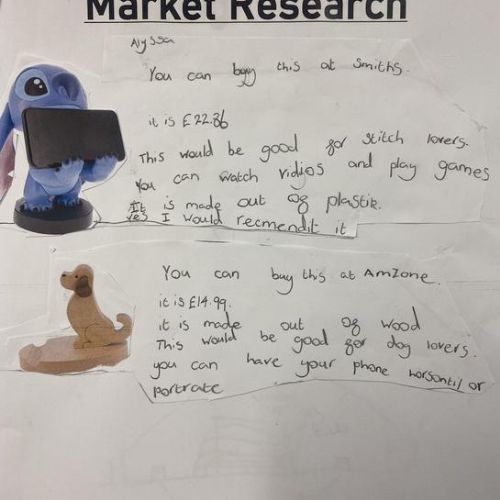 Market Research
Alyssa
You can buy this at Smiths.
it is £22.86
This would be good for Stitch lovers.
You can watch vidios and play games
It is made out of plastik.
Yes I would recmendit it
You can buy this at Amzone.
it is £14.99.
it is made out of wood
This would be good for dog lovers.
you can have your phone horsontil or
portrate